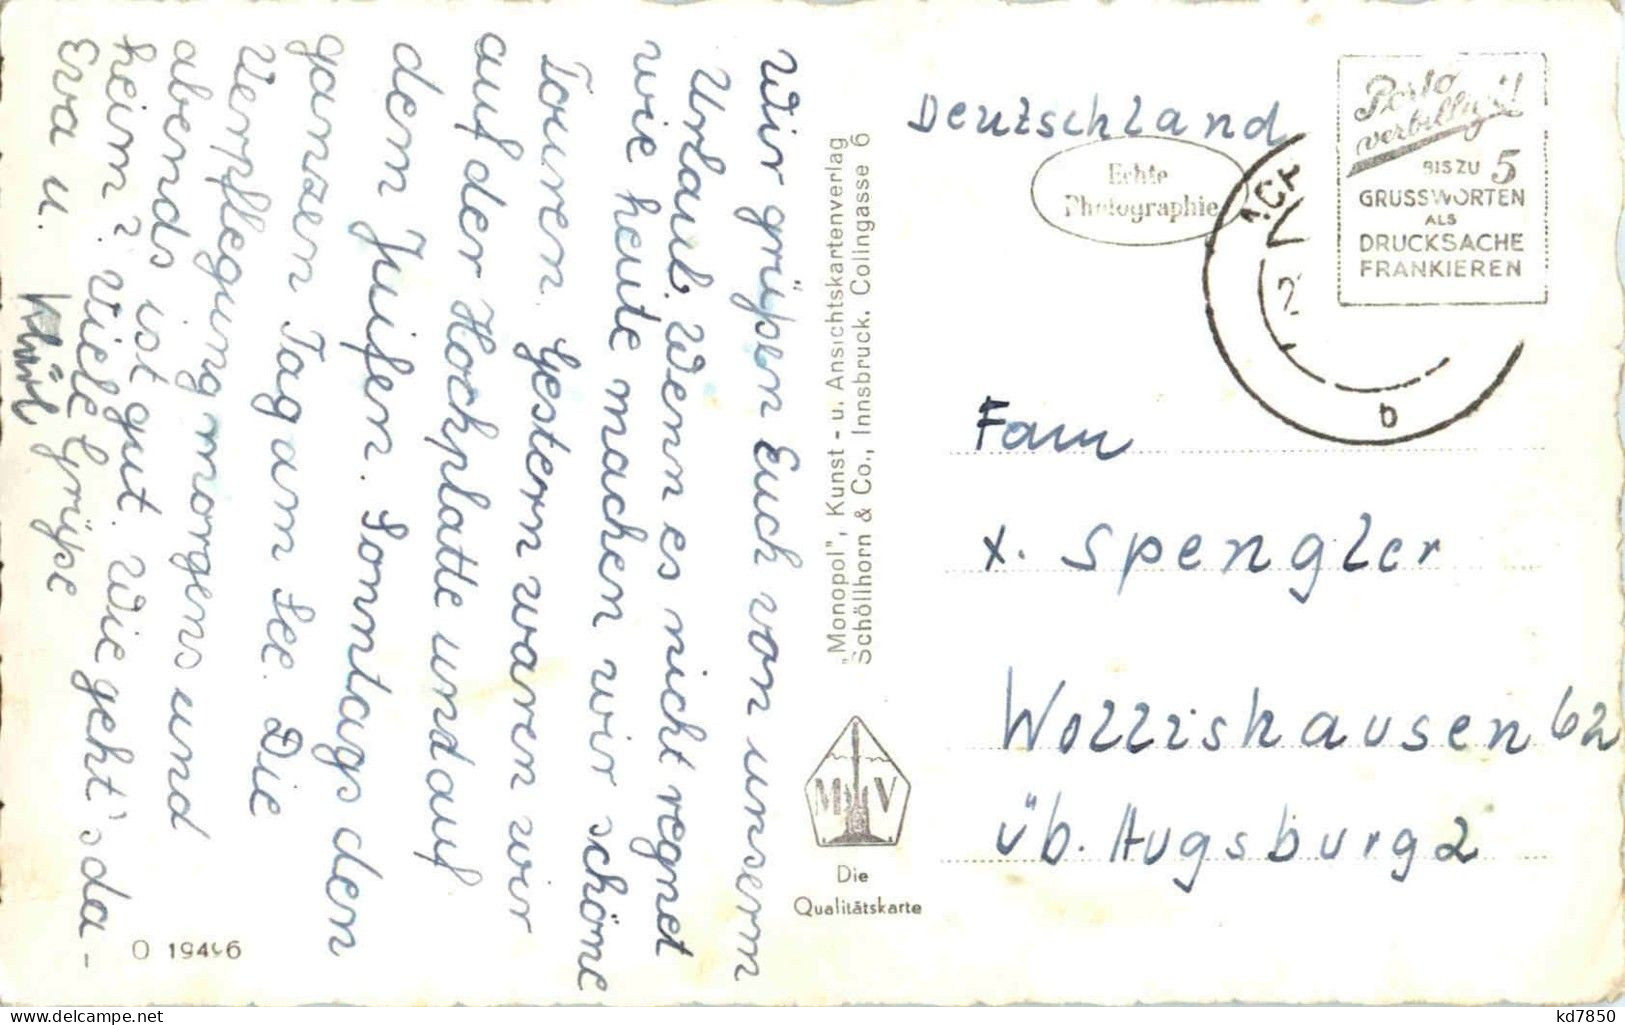 Wir grüßen Euch von unserm
Urlaub. Wenn es nicht regnet
wie heute machen wir schöne
Touren. Gestern waren wir
auf der Hochplatte und auf
dem Juifen. Sonntags den
ganzen Tag am See. Die
Verpflegung morgens und
abends ist gut. Wie geht's da-
heim? Viele Grüße
Eva u.
"Monopol", Kunst- u. Ansichtskartenverlag
Schöllhorn & Co., Innsbruck. Colingasse 6
MKV
Die
Qualitätskarte
O 19496
Deutschland
Echte
Photographie
Porto
verbilligt!
BIS ZU 5
GRUSSWORTEN
ALS
DRUCKSACHE
FRANKIEREN
b
Fam
X. Spengler
Wollishausen 62
üb. Augsburg 2
www.delcampe.net
kd7850